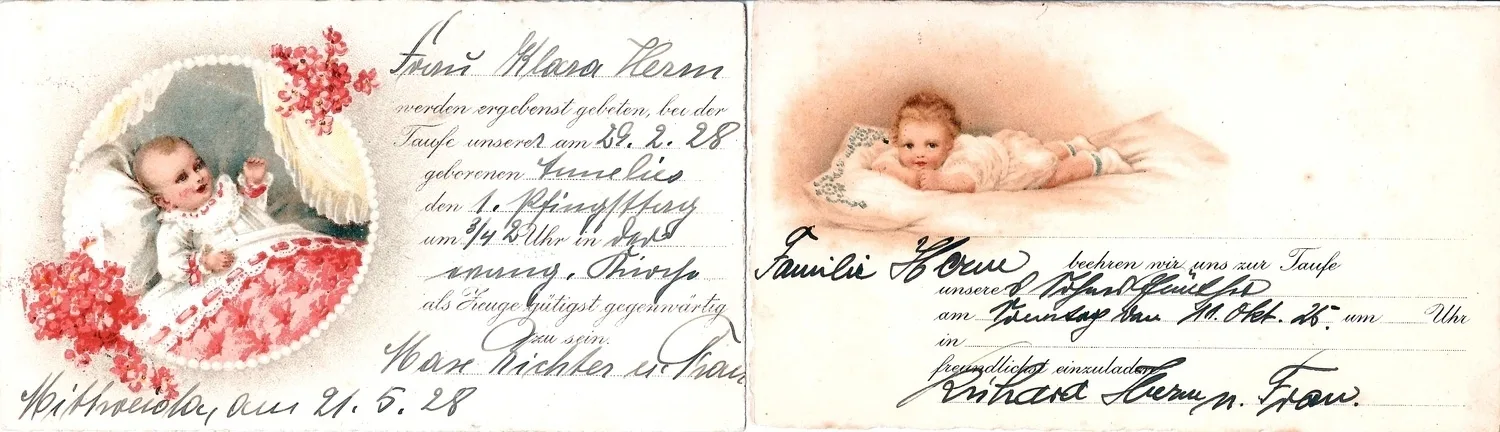 Frau Klara Herm
werden ergebenst gebeten, bei der
Taufe unserer am 29. 2. 28
geborenen Annelies
den 1. Pfingsttag
um 3/4 2 Uhr in der
evang. Kirche
als Zeuge gütigst gegenwärtig
zu sein.
Max Richter u. Frau
Mittweida, am 21. 5. 28
Familie Herm beehren wir uns zur Taufe
unseres Sohnes Günther
am Sonntag den 11. Okt. 25. um Uhr
in
freundlichst einzuladen
Richard Herm u. Frau.